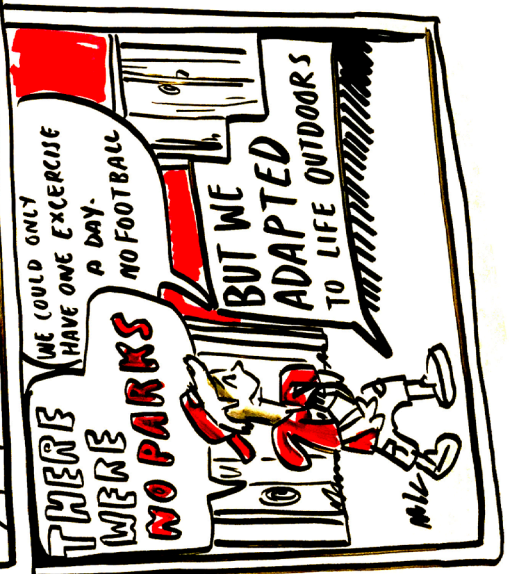 THERE
WERE
NO PARKS
WE COULD ONLY
HAVE ONE EXCERCISE
A DAY.
NO FOOTBALL
BUT WE
ADAPTED
TO LIFE OUTDOORS